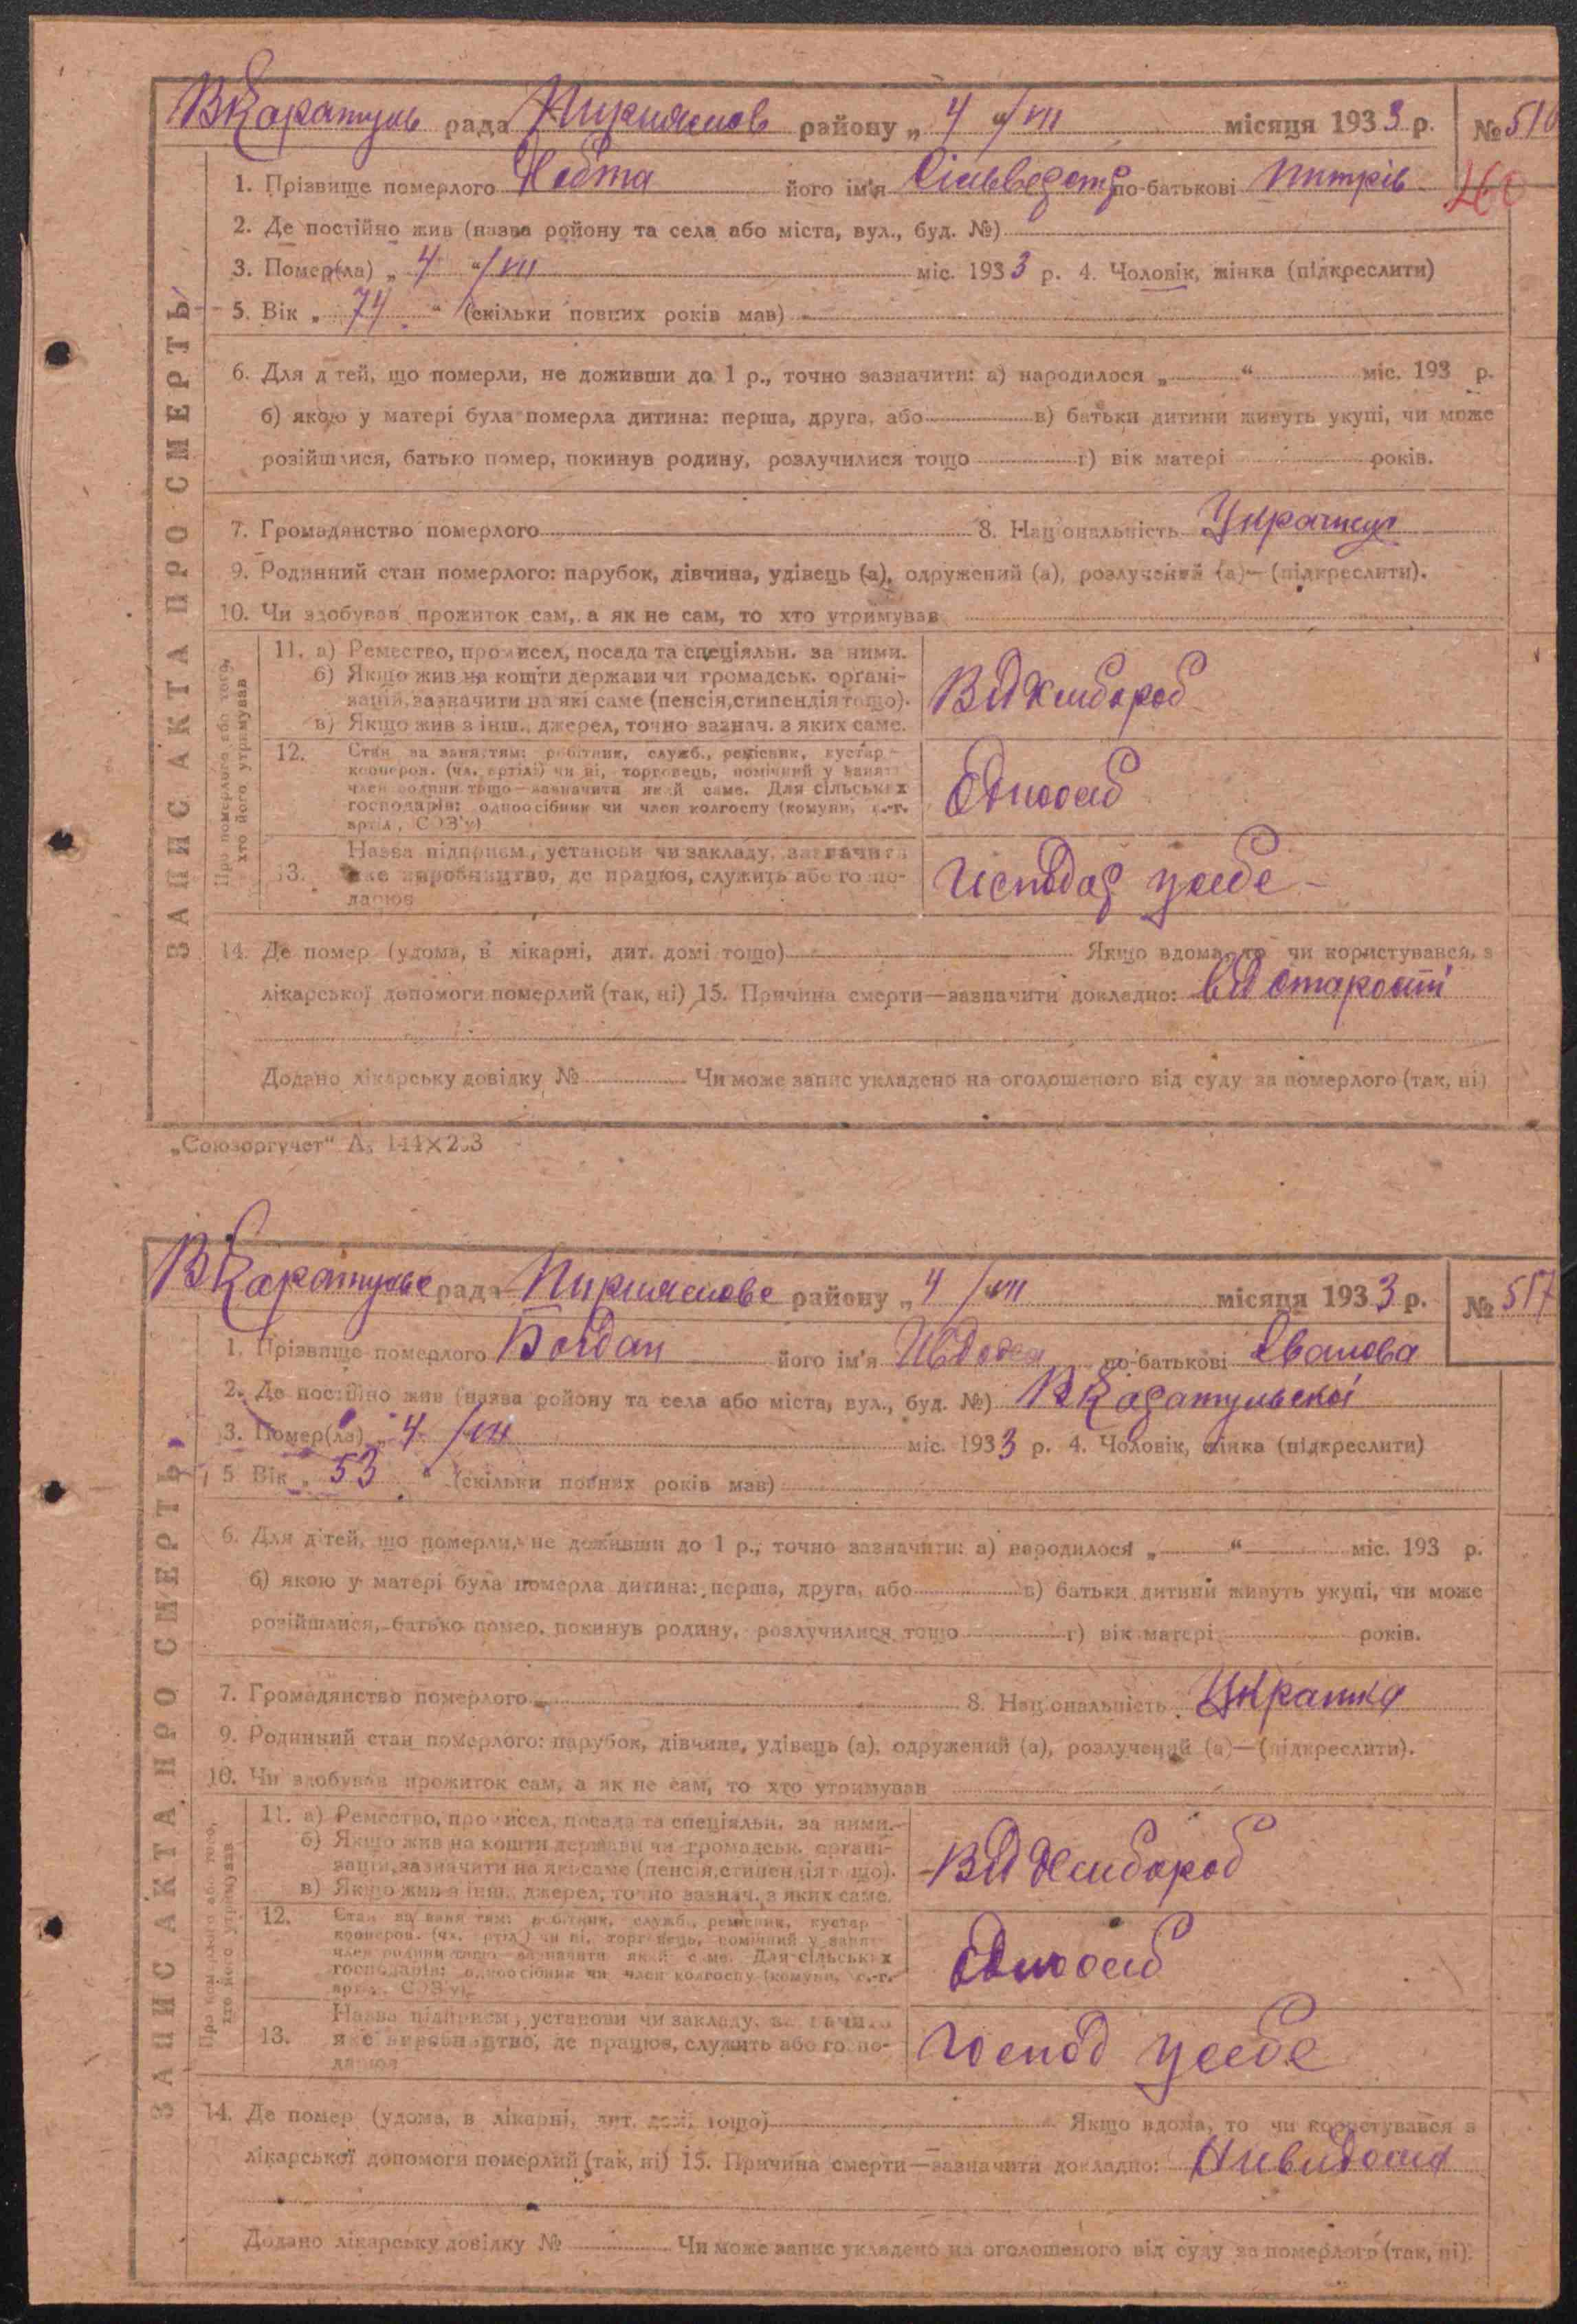 ВКаратуль рада района „ 4 “ /VII місяця 1933 р. № 516
1. Прізвище померлого його ім'я Сильведстр по-батькові 460
2. Де постійно жив (назва ройону та села або міста, вул., буд. №)
3. Помер(ла) „ 4 “ /VII міс. 1933 р. 4. Чоловік, жінка (підкреслити)
5. Вік „ 74 “ (скільки повних років мав)
6. Для дітей, що померли, не доживши до 1 р., точно зазначити: а) народилося „ “ міс. 193 р.
б) якою у матері була померла дитина: перша, друга, або в) батьки дитини живуть укупі, чи може
розійшлися, батько помер, покинув родину, розлучилися тощо г) вік матері років.
7. Громадянство померлого 8. Національність Украинец
9. Родинний стан померлого: парубок, дівчина, удівець (а), одружений (а), розлучений (а)—(підкреслити).
10. Чи здобував прожиток сам, а як не сам, то хто утримував
ЗАПИС АКТА ПРО СМЕРТЬ
Про померлого або того,
хто його утримував
11. а) Ремество, промисел, посада та спеціяльн. за ними.
б) Якщо жив на кошти держави чи громадськ. органі-
зацій, зазначити на які саме (пенсія, стипендія тощо).
в) Якщо жив з інш. джерел, точно зазнач. з яких саме.
Від Хлибороб
12. Стан за заняттям: робітник, служб., ремісник, кустар
кооперов. (чл. артілі) чи ні, торговець, помічний у занятт
член родини тощо—зазначити який саме. Для сільських
господарів: одноосібник чи член колгоспу (комуни, с.-г.
артіл, СОЗ'у)
Одноосіб
13. Назва підприєм., установи чи закладу, зазначити
яке виробництво, де працює, служить або госпо-
дарює
Исподар усебе
14. Де помер (удома, в лікарні, дит. домі тощо) Якщо вдома, то чи користувався з
лікарської допомоги померлий (так, ні) 15. Причина смерти—зазначити докладно: від старости
Додано лікарську довідку № Чи може запис укладено на оголошеного від суду за померлого (так, ні)
„Союзоргучет“
ВКаратульс рада района „ 4 “ /VII місяця 1933 р. № 517
1. Прізвище померлого Богдан його ім'я Ивдокея по-батькові Іванова
2. Де постійно жив (назва ройону та села або міста, вул., буд. №) ВКаратульскоі
3. Помер(ла) „ 4 /VII міс. 1933 р. 4. Чоловік, жінка (підкреслити)
5 Вік „ 53 “ (скільки повних років мав)
6. Для дітей, що померли, не доживши до 1 р., точно зазначити: а) народилося „ “ міс. 193 р.
б) якою у матері була померла дитина: перша, друга, або в) батьки дитини живуть укупі, чи може
розійшлися, батько помер, покинув родину, розлучилися тощо г) вік матері років.
7. Громадянство померлого 8. Національність Украинка
9. Родинний стан померлого: парубок, дівчина, удівець (а), одружений (а), розлучений (а)—(підкреслити).
10. Чи здобував прожиток сам, а як не сам, то хто утримував
ЗАПИС АКТА ПРО СМЕРТЬ
Про померлого або того,
хто його утримував
11. а) Ремество, промисел, посада та спеціяльн. за ними.
б) Якщо жив на кошти держави чи громадськ. органі-
зацій, зазначити на які саме (пенсія, стипендія тощо).
в) Якщо жив з інш. джерел, точно зазнач. з яких саме.
Від Хлибороб
12. Стан за заняттям: робітник, служб., ремісник, кустар
кооперов. (чл. артілі) чи ні, торговець, помічний у занятт
член родини тощо—зазначити який саме. Для сільських
господарів: одноосібник чи член колгоспу (комуни, с.-г.
артіл, СОЗ'у)
Одноосіб
13. Назва підприєм., установи чи закладу, зазначити
яке виробництво, де працює, служить або госпо-
дарює
Господ усебе
14. Де помер (удома, в лікарні, дит. домі тощо) Якщо вдома, то чи користувався з
лікарської допомоги померлий (так, ні) 15. Причина смерти—зазначити докладно: Нивидома
Додано лікарську довідку № Чи може запис укладено на оголошеного від суду за померлого (так, ні).